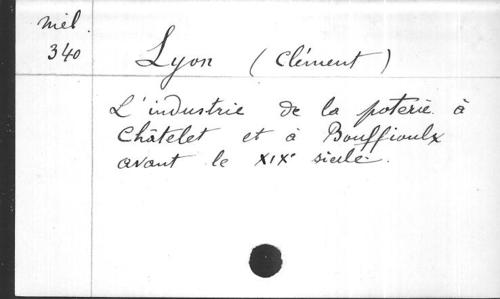 Mél.
340
Lyon (Clément)
L'industrie de la poterie à
Châtelet et à Bouffioulx
avant le XIXe siècle.